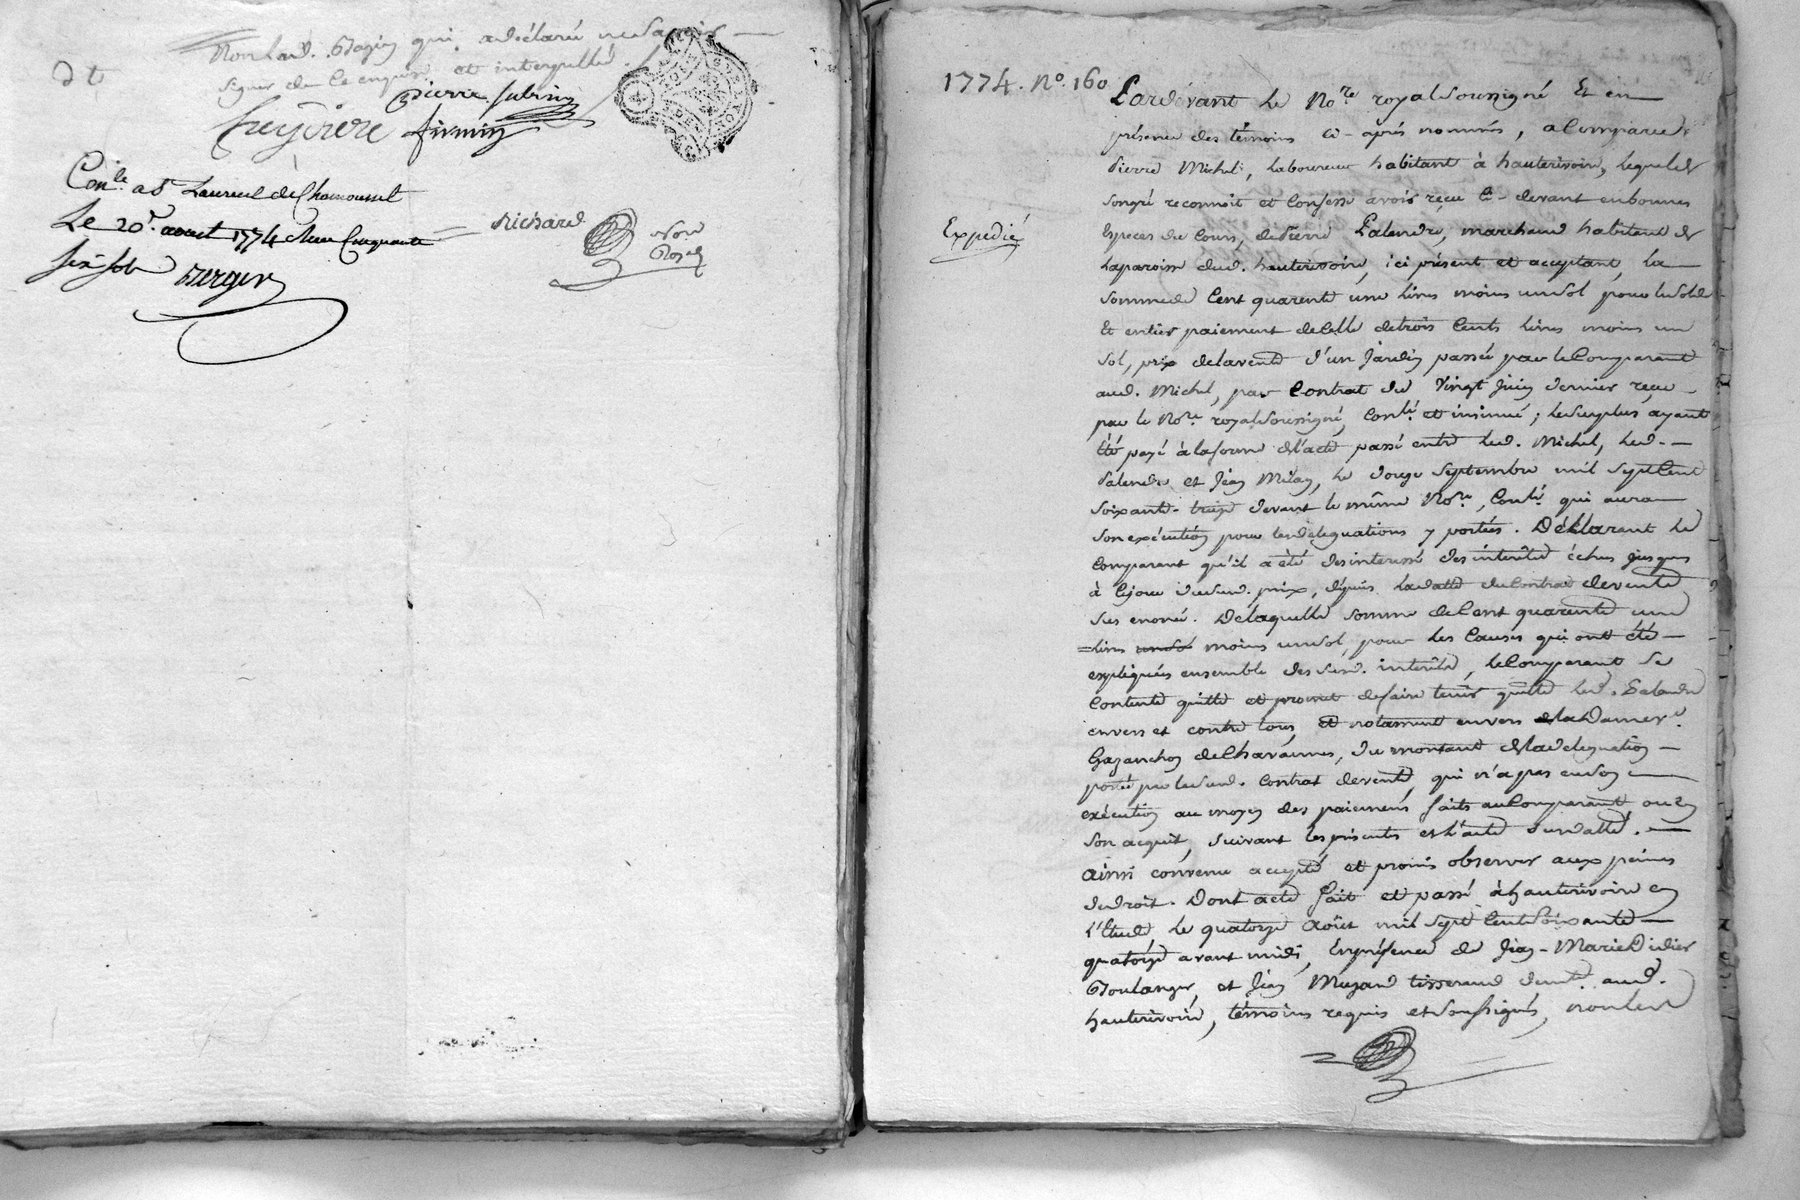 non led. Bazin qui a déclaré ne savoir
signer de ce enquis et interpellé.
Pierre Subrin
freydiere firmin
Con.le a St Laurent de Chamousset
Le 20.e aout 1774 Reçu Cinquante
six sols Berger
Richard
Nore
Royal
1774. No. 160
Expedié
Pardevant Le No.re royal soussigné Et en
présence des témoins ci-après nommés, a Comparu
Pierre Michel, laboureur habitant à hauterivoire, lequel de
son gré reconnoit et Confesse avoir reçu Ci-devant en bonnes
Especes du Cours, de Pierre Palandre, marchand habitant de
la paroisse dud. hauterivoire, ici présent et acceptant, la
somme de Cent quarente une Livres moins un sol pour le solde
Et entier paiement de Celle de trois Cents Livres moins un
sol, prix de la vente d'un Jardin passée par le Comparant
aud. Michel, par Contrat du Vingt Juin dernier reçu
par le No.re royal soussigné, Con.lé et insinué; le surplus ayant
été payé à la forme de l'acte passé entre led. Michel, led.
Palandre et Jean le douze Septembre mil Sept Cent
soixante-treize devant le même No.re, Con.lé qui aura
son exécution pour les déléguations y portées. Déclarant Le
Comparant qu'il a été desinteressé des intérêts échus jusques
à Cejour dusud. prix, depuis la datte du Contrat de vente
sus enoncé. De laquelle somme de Cent quarente une
Livres un sol moins un sol, pour les Causes qui ont été
expliquées ensemble des susd. intérêts, le Comparant se
Contente quitte et promet de faire tenir quitte led. Palandre
envers et contre tous, et notament envers la Dame
Gazanchon de Chavannes, du montant de la déleguation
portée par le susd. Contrat de vente, qui n'a pas eu son
exécution au moyen des paiemens faits au Comparant ou en
son acquit, suivant les présentes et l'acte susdatté.
Ainsi convenu accepté et promis observer aux peines
de droit. Dont acte fait et passé à hauterivoire en
l'Etude Le quatorze Août mil sept Cent Soixante
quatorze avant midi, En présence de Jean-Marie Didier
Boulanger, et Jean tisserand aud.
hauterivoire, témoins requis et soussignés, non led